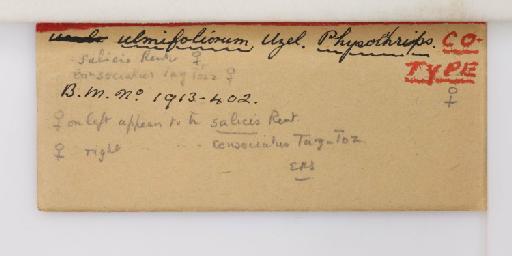 ulmifoliorum, Uzel. Physothrips. CO-
TYPE
salicis Reut ♀
consociatus Targ Toz ♀
B.M. No. 1913-402. ♀
♀ on left appears to be salicis Reut.
♀ right " " consociatus Targ-Toz.